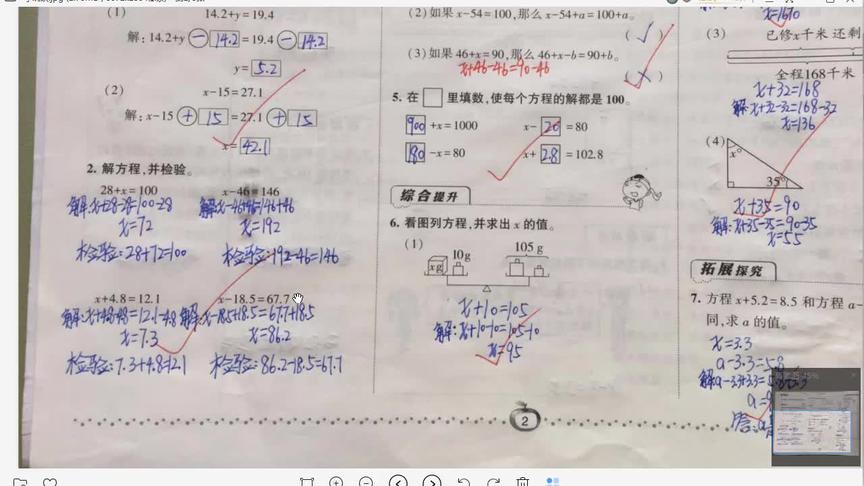 (1) 14.2+y=19.4
解:14.2+y－14.2=19.4－14.2
y=5.2
(2) x－15=27.1
解:x－15＋15=27.1＋15
x=42.1
2. 解方程,并检验。
28+x=100 x－46=146
解:x+28-28=100-28 解:x-46+46=146+46
x=72 x=192
检验:28+72=100 检验:192-46=146
x+4.8=12.1 x－18.5=67.7
解:x+4.8-4.8=12.1-4.8 解:x-18.5+18.5=67.7+18.5
x=7.3 x=86.2
检验:7.3+4.8=12.1 检验:86.2-18.5=67.7
(2) 如果 x－54=100,那么 x－54+a=100+a。
(√)
(3) 如果 46+x=90,那么 46+x－b=90+b。
x+46-46=90-46
(×)
5. 在□里填数,使每个方程的解都是 100。
900+x=1000 x－20=80
180－x=80 x+2.8=102.8
综合提升
6. 看图列方程,并求出 x 的值。
(1)
x g 10g 105 g
x+10=105
解:x+10-10=105-10
x=95
2
x=1610
(3) 已修x千米 还剩
全程168千米
x+32=168
解:x+32-32=168-32
x=136
(4)
x° 35°
x+35=90
解:x+35-35=90-35
x=55
拓展探究
7. 方程 x+5.2=8.5 和方程 a－
同,求 a 的值。
x=3.3
a-3.3=5.8